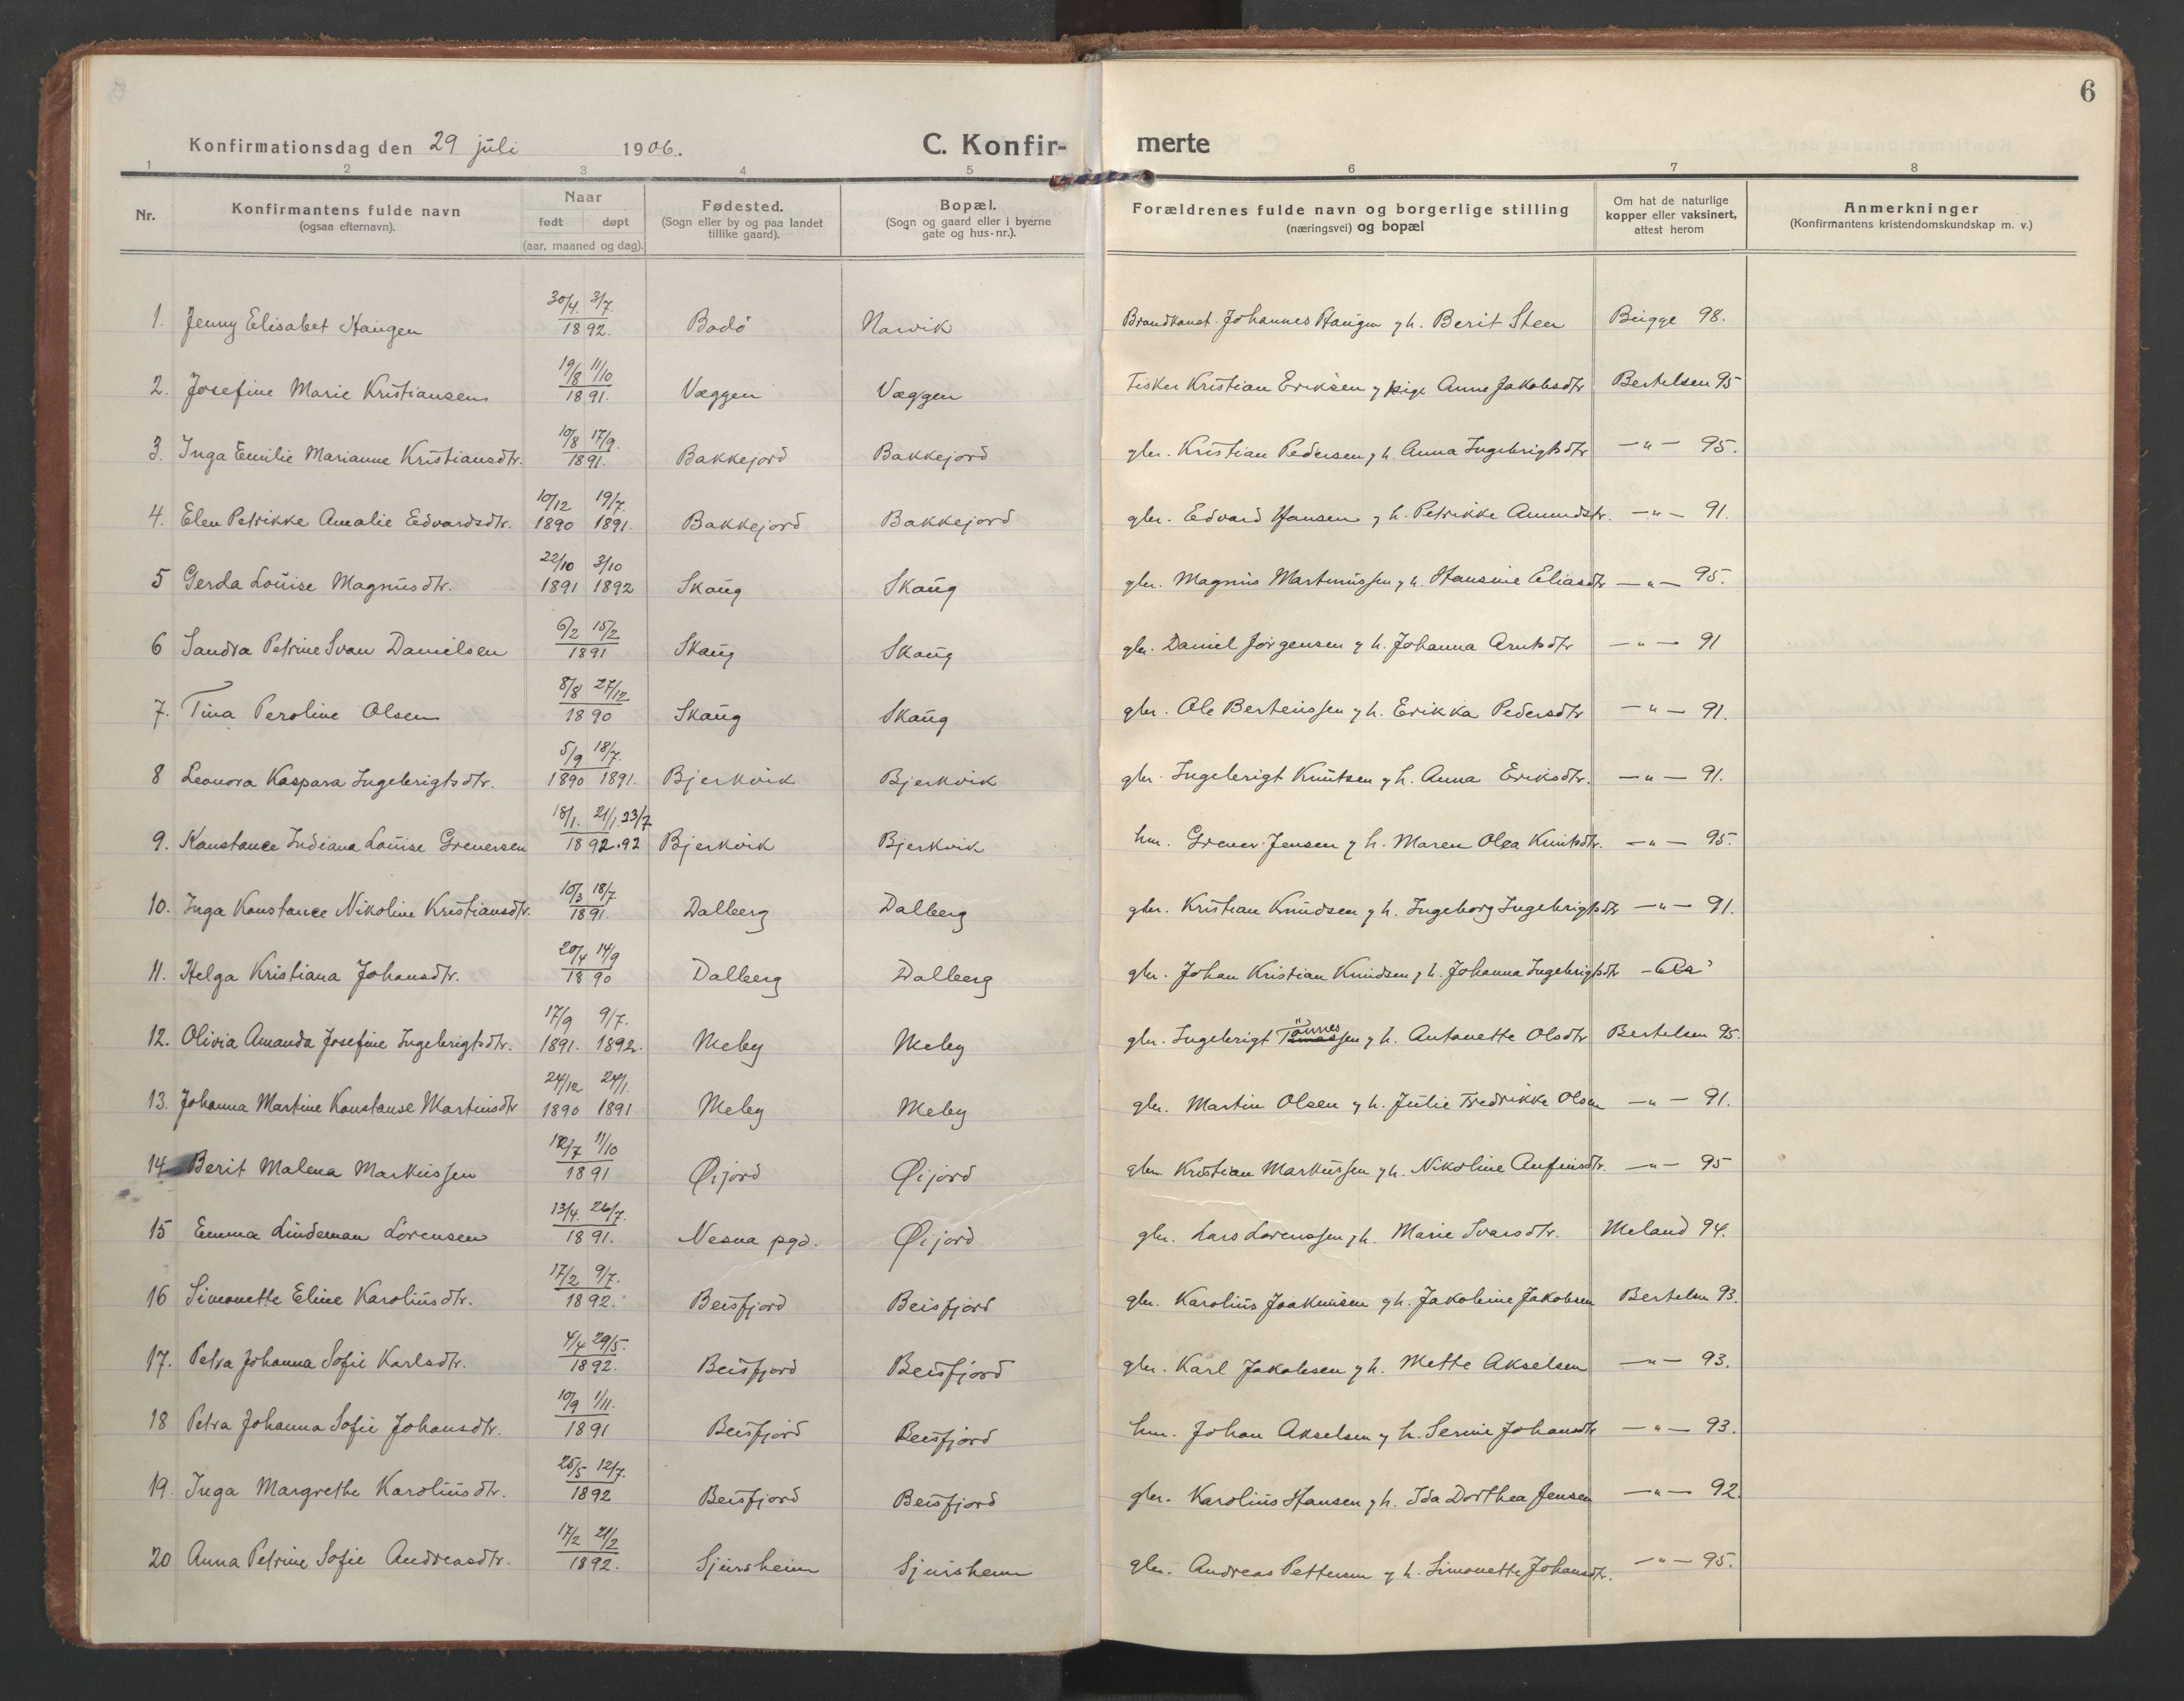 6
Konfirmationsdag den 29 juli 1906. C. Konfir- merte
1 2 3 4 5 6 7 8
Nr. Konfirmantens fulde navn (ogsaa efternavn). Naar født døpt (aar, maaned og dag). Fødested. (Sogn eller by og paa landet tillike gaard). Bopæl. (Sogn og gaard eller i byerne gate og hus-nr.). Forældrenes fulde navn og borgerlige stilling (næringsvei) og bopæl Om hat de naturlige kopper eller vaksinert, attest herom Anmerkninger (Konfirmantens kristendomskundskap m. v.)
1. Jenny Elisabet Haugen 30/4. 3/7. 1892. Bodö Narvik Johannes Haugen g h. Berit Steen 98.
2. Josefine Marie Kristiansen 19/8 11/10 1891. Væggen Væggen Fisker Kristian Eriksen g pige Anne Jakobsdtr Bertelsen 95
3. Inga Emilie Marianne Kristiansdtr. 10/8 17/9. 1891. Bakkejord Bakkejord gbr. Kristian Pedersen g h. Anna Ingebrigtsdtr — " — 95.
4. Elen Petrikke Amalie Edvardsdtr. 10/12 19/7. 1890 1891. Bakkejord Bakkejord gbr. Edvard Hansen g h. Petrikke Amundstr. — " — 91.
5 Gerda Louise Magnusdtr. 22/10 3/10 1891 1892 Skaug Skaug gbr. Magnus Martinussen g h. Hansine Eliasdtr — " — 95.
6 Sandra Petrine Svan Danielsen 6/2 15/2 1891 Skaug Skaug gbr. Daniel Jörgensen g h. Johanna Arntsdtr — " — 91
7. Tina Peroline Olsen 8/8 27/12 1890 Skaug Skaug gbr. Ole Berteussen g h. Erikka Pedersdtr — " — 91.
8 Leonora Kaspara Ingebrigtsdtr. 5/9 18/7. 1890 1891. Bjerkvik Bjerkvik gbr. Ingebrigt Knutsen g h. Anna Eriksdtr. — " — 91.
9. Konstance Indiana Louise Grenersen 18/1. 21/1. 23/7 1892. 92 Bjerkvik Bjerkvik hm. Grener Jensen g h. Maren Olea Knutsdtr. — " — 95.
10. Inga Konstance Nikoline Kristiansdtr. 10/3 18/7 1891. Dalberg Dalberg gbr. Kristian Knudsen g h. Ingeborg Ingebrigtsdtr — " — 91.
11. Helga Kristiana Johansdtr. 20/4 14/9 1890 Dalberg Dalberg gbr. Johan Kristian Knudsen g h. Johanna Ingebrigtsdtr
12. Olivia Amanda Josefine Ingebrigtsdtr. 17/9 9/7. 1891. 1892. Meby Meby gbr. Ingebrigt Tönnessen g h. Antonette Olsdtr Bertelsen 95.
13. Johanna Martine Konstanse Martinsdtr 24/12 24/1. 1890 1891 Meby Meby gbr. Martin Olsen g h. Julie Fredrikke Olsen — " — 91.
14 Berit Malena Markussen 12/7 11/10 1891 Øijord Øijord gbr. Kristian Markussen g h. Nikoline Anfinsdtr. — " — 95
15 Emma Lindeman Lorensen 13/4. 26/7. 1891. Nesna pgd. Øijord gbr. Lars Lorenssen g h. Marie Ivarsdtr. Meland 94.
16 Simonette Eline Karoliusdtr. 17/2 9/7. 1892. Beisfjord Beisfjord gbr. Karolius Joakimsen g h. Jakobine Jakobsen Bertelsen 93.
17. Petra Johanna Sofie Karlsdtr. 4/4 29/5. 1892. Beisfjord Beisfjord gbr. Karl Jakobsen g h. Mette Akselsen — " — 93.
18 Petra Johanna Sofie Johansdtr. 10/9 1/11. 1891 Beisfjord Beisfjord hm. Johan Akselsen g h. Serine Johansdtr — " — 93.
19. Inga Margrethe Karoliusdtr. 25/5 12/7. 1892 Beisfjord Beisfjord gbr. Karolius Hansen g h. Ida Dorthea Jensen — " — 92.
20 Anna Petrine Sofie Andreasdtr. 17/2 21/2 1892. Sjursheim Sjursheim gbr. Andreas Pettersen g h. Simonette Johansdtr. — " — 95.